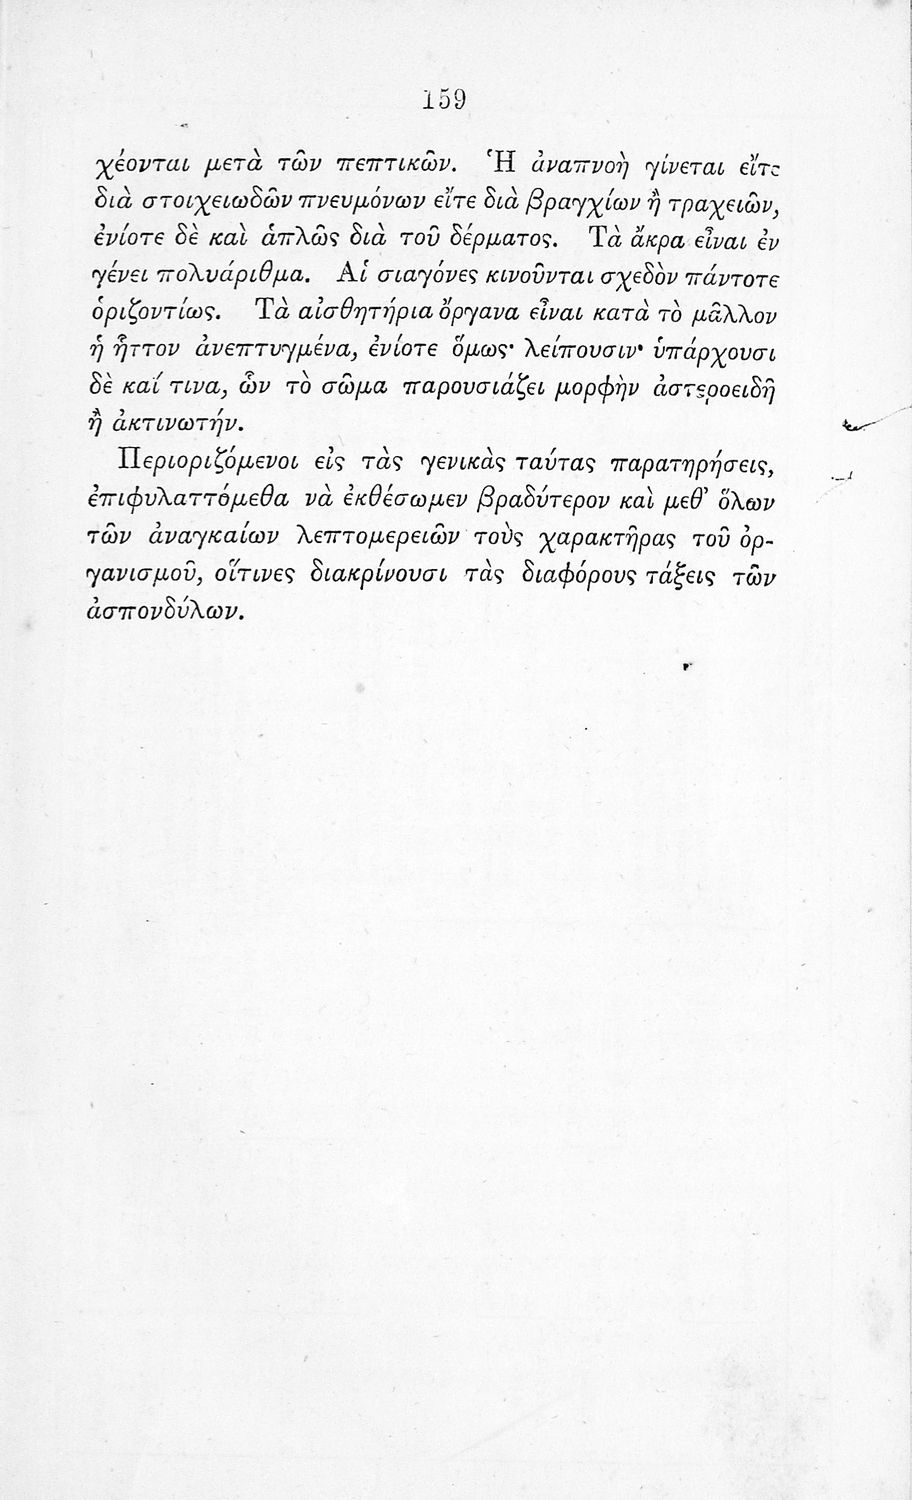 159
χέονται μετὰ τῶν πεπτικῶν. Ἡ ἀναπνοὴ γίνεται εἴτε
διὰ στοιχειωδῶν πνευμόνων εἴτε διὰ βραγχίων ἢ τραχειῶν,
ἐνίοτε δὲ καὶ ἁπλῶς διὰ τοῦ δέρματος. Τὰ ἄκρα εἶναι ἐν
γένει πολυάριθμα. Αἱ σιαγόνες κινοῦνται σχεδὸν πάντοτε
ὁριζοντίως. Τὰ αἰσθητήρια ὄργανα εἶναι κατὰ τὸ μᾶλλον
ἡ ἧττον ἀνεπτυγμένα, ἐνίοτε ὅμως· λείπουσιν· ὑπάρχουσι
δὲ καί τινα, ὧν τὸ σῶμα παρουσιάζει μορφὴν ἀστεροειδῆ
ἢ ἀκτινωτήν.
Περιοριζόμενοι εἰς τὰς γενικὰς ταύτας παρατηρήσεις,
ἐπιφυλαττόμεθα νὰ ἐκθέσωμεν βραδύτερον καὶ μεθ' ὅλων
τῶν ἀναγκαίων λεπτομερειῶν τοὺς χαρακτῆρας τοῦ ὀρ-
γανισμοῦ, οἵτινες διακρίνουσι τὰς διαφόρους τάξεις τῶν
ἀσπονδύλων.